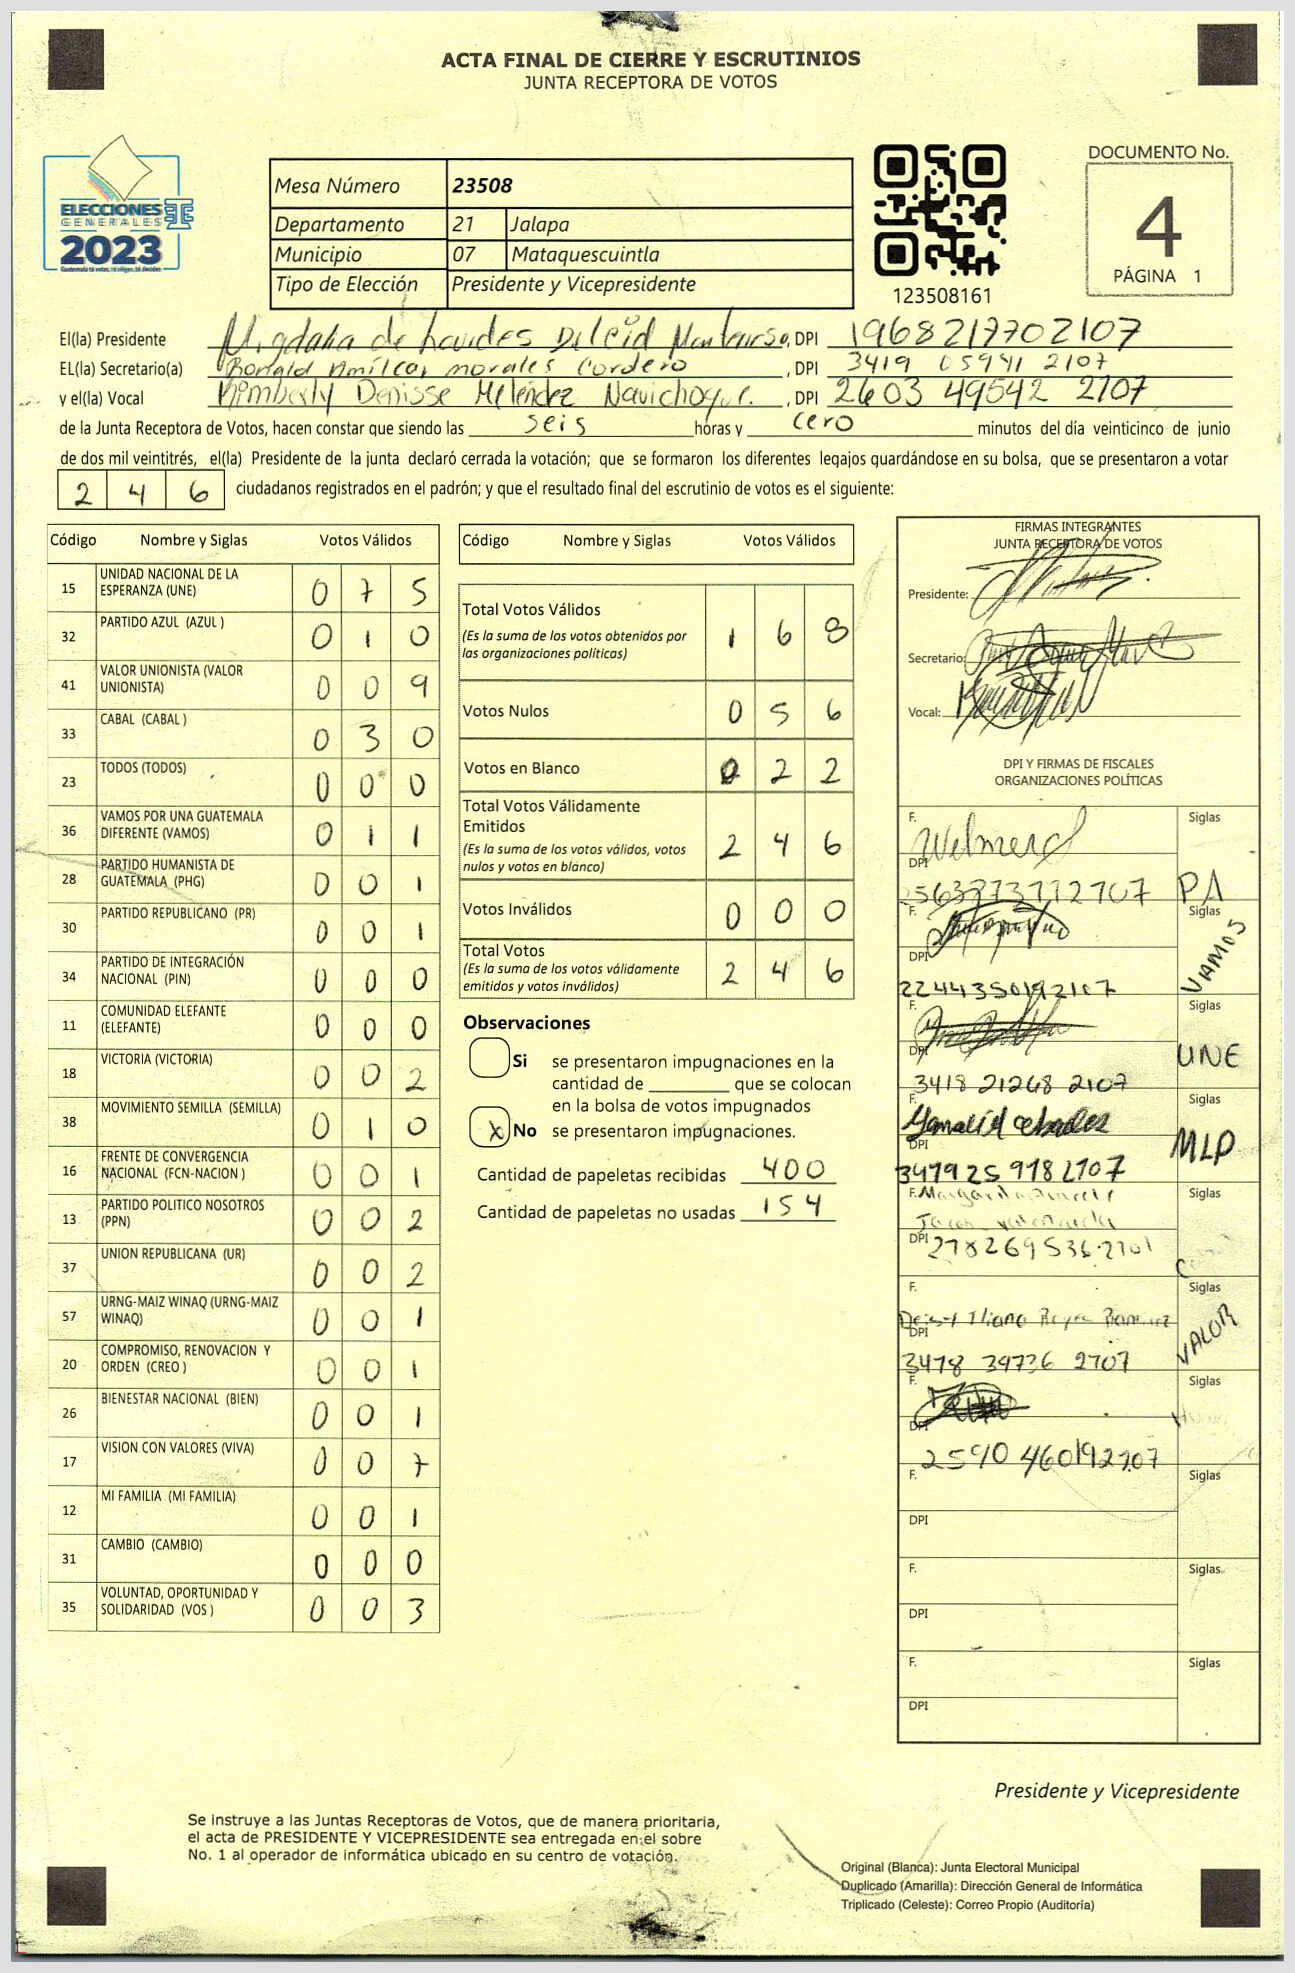 ACTA FINAL DE CIERRE Y ESCRUTINIOS
JUNTA RECEPTORA DE VOTOS
ELECCIONES
GENERALES
2023
Guatemala tú votas, tú eliges, tú decides
Mesa Número 23508
Departamento 21 Jalapa
Municipio 07 Mataquescuintla
Tipo de Elección Presidente y Vicepresidente
123508161
DOCUMENTO No.
4
PÁGINA 1
El(la) Presidente Migdalia de Lourdes Monterroso, DPI 1968217702107
EL(la) Secretario(a) Ronald Amilcar morales Cordero, DPI 3419 05941 2107
y el(la) Vocal Kimberly Denisse Meléndez Navichoque. , DPI 2603 49542 2107
de la Junta Receptora de Votos, hacen constar que siendo las seis horas y cero minutos del día veinticinco de junio
de dos mil veintitrés, el(la) Presidente de la junta declaró cerrada la votación; que se formaron los diferentes legajos guardándose en su bolsa, que se presentaron a votar
2 4 6 ciudadanos registrados en el padrón; y que el resultado final del escrutinio de votos es el siguiente:
Código Nombre y Siglas Votos Válidos
15 UNIDAD NACIONAL DE LA ESPERANZA (UNE) 0 7 5
32 PARTIDO AZUL (AZUL ) 0 1 0
41 VALOR UNIONISTA (VALOR UNIONISTA) 0 0 9
33 CABAL (CABAL ) 0 3 0
23 TODOS (TODOS) 0 0 0
36 VAMOS POR UNA GUATEMALA DIFERENTE (VAMOS) 0 1 1
28 PARTIDO HUMANISTA DE GUATEMALA (PHG) 0 0 1
30 PARTIDO REPUBLICANO (PR) 0 0 1
34 PARTIDO DE INTEGRACIÓN NACIONAL (PIN) 0 0 0
11 COMUNIDAD ELEFANTE (ELEFANTE) 0 0 0
18 VICTORIA (VICTORIA) 0 0 2
38 MOVIMIENTO SEMILLA (SEMILLA) 0 1 0
16 FRENTE DE CONVERGENCIA NACIONAL (FCN-NACION ) 0 0 1
13 PARTIDO POLITICO NOSOTROS (PPN) 0 0 2
37 UNION REPUBLICANA (UR) 0 0 2
57 URNG-MAIZ WINAQ (URNG-MAIZ WINAQ) 0 0 1
20 COMPROMISO, RENOVACION Y ORDEN (CREO ) 0 0 1
26 BIENESTAR NACIONAL (BIEN) 0 0 1
17 VISION CON VALORES (VIVA) 0 0 7
12 MI FAMILIA (MI FAMILIA) 0 0 1
31 CAMBIO (CAMBIO) 0 0 0
35 VOLUNTAD, OPORTUNIDAD Y SOLIDARIDAD (VOS ) 0 0 3
Código Nombre y Siglas Votos Válidos
Total Votos Válidos 1 6 8
(Es la suma de los votos obtenidos por
las organizaciones políticas)
Votos Nulos 0 5 6
Votos en Blanco 0 2 2
Total Votos Válidamente
Emitidos 2 4 6
(Es la suma de los votos válidos, votos
nulos y votos en blanco)
Votos Inválidos 0 0 0
Total Votos 2 4 6
(Es la suma de los votos válidamente
emitidos y votos inválidos)
Observaciones
Si se presentaron impugnaciones en la
cantidad de ________ que se colocan
en la bolsa de votos impugnados
X No se presentaron impugnaciones.
Cantidad de papeletas recibidas 400
Cantidad de papeletas no usadas 154
FIRMAS INTEGRANTES
JUNTA RECEPTORA DE VOTOS
Presidente:
Secretario:
Vocal:
DPI Y FIRMAS DE FISCALES
ORGANIZACIONES POLÍTICAS
F. Siglas
DPI
PA
F. Siglas
VAMOS
DPI
2244350192107
F. Siglas
DPI UNE
3418 21268 2107
F. Siglas
DPI MLP
347925 9182107
F. Margarita Siglas
DPI 278269536 2101
F. Siglas
DPI VALOR
3478 39736 2707
F. Siglas
DPI
2590 460192207
F. Siglas
DPI
F. Siglas
DPI
F. Siglas
DPI
Presidente y Vicepresidente
Se instruye a las Juntas Receptoras de Votos, que de manera prioritaria,
el acta de PRESIDENTE Y VICEPRESIDENTE sea entregada en el sobre
No. 1 al operador de informática ubicado en su centro de votación.
Original (Blanca): Junta Electoral Municipal
Duplicado (Amarilla): Dirección General de Informática
Triplicado (Celeste): Correo Propio (Auditoría)